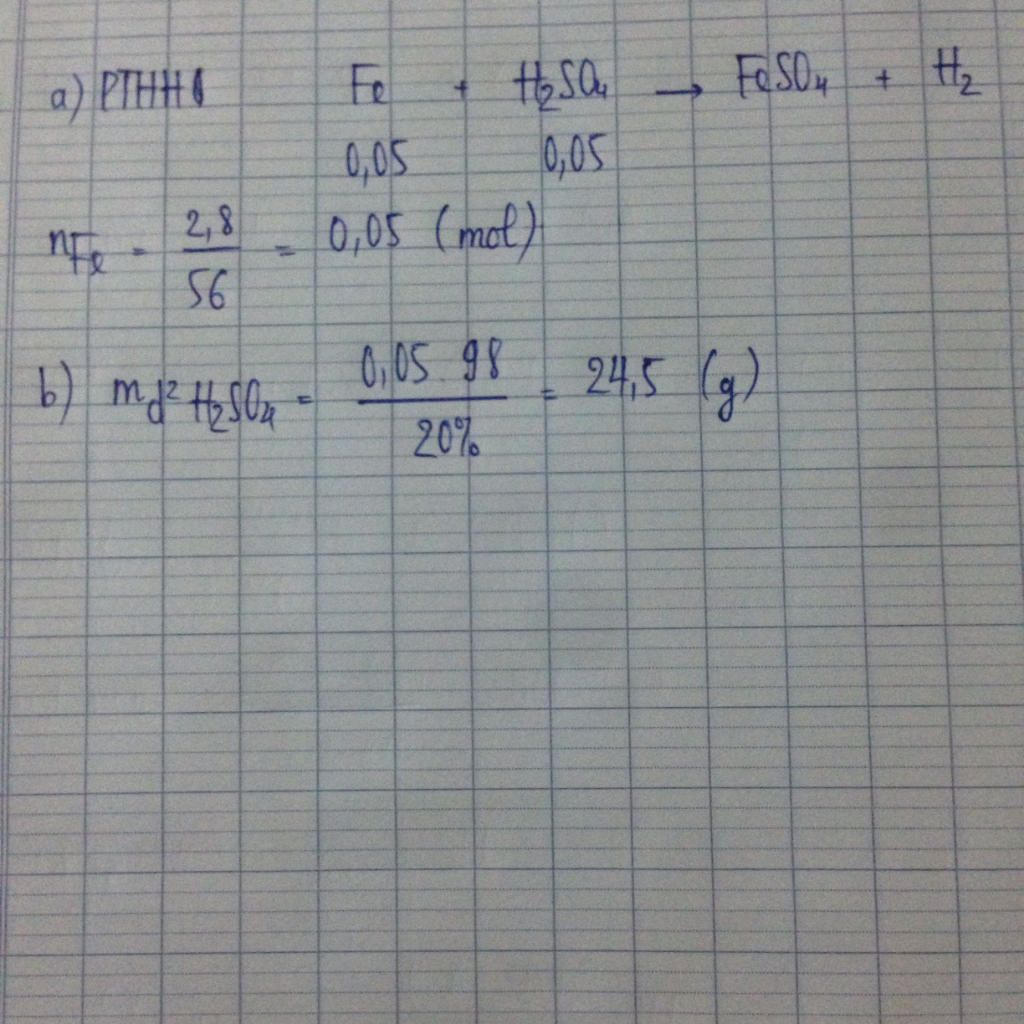 a) PTHH Fe + H₂SO₄ → FeSO₄ + H₂
0,05 0,05
nFe = 2,8 / 56 = 0,05 (mol)
b) md² H₂SO₄ = 0,05 . 98 / 20% = 24,5 (g)